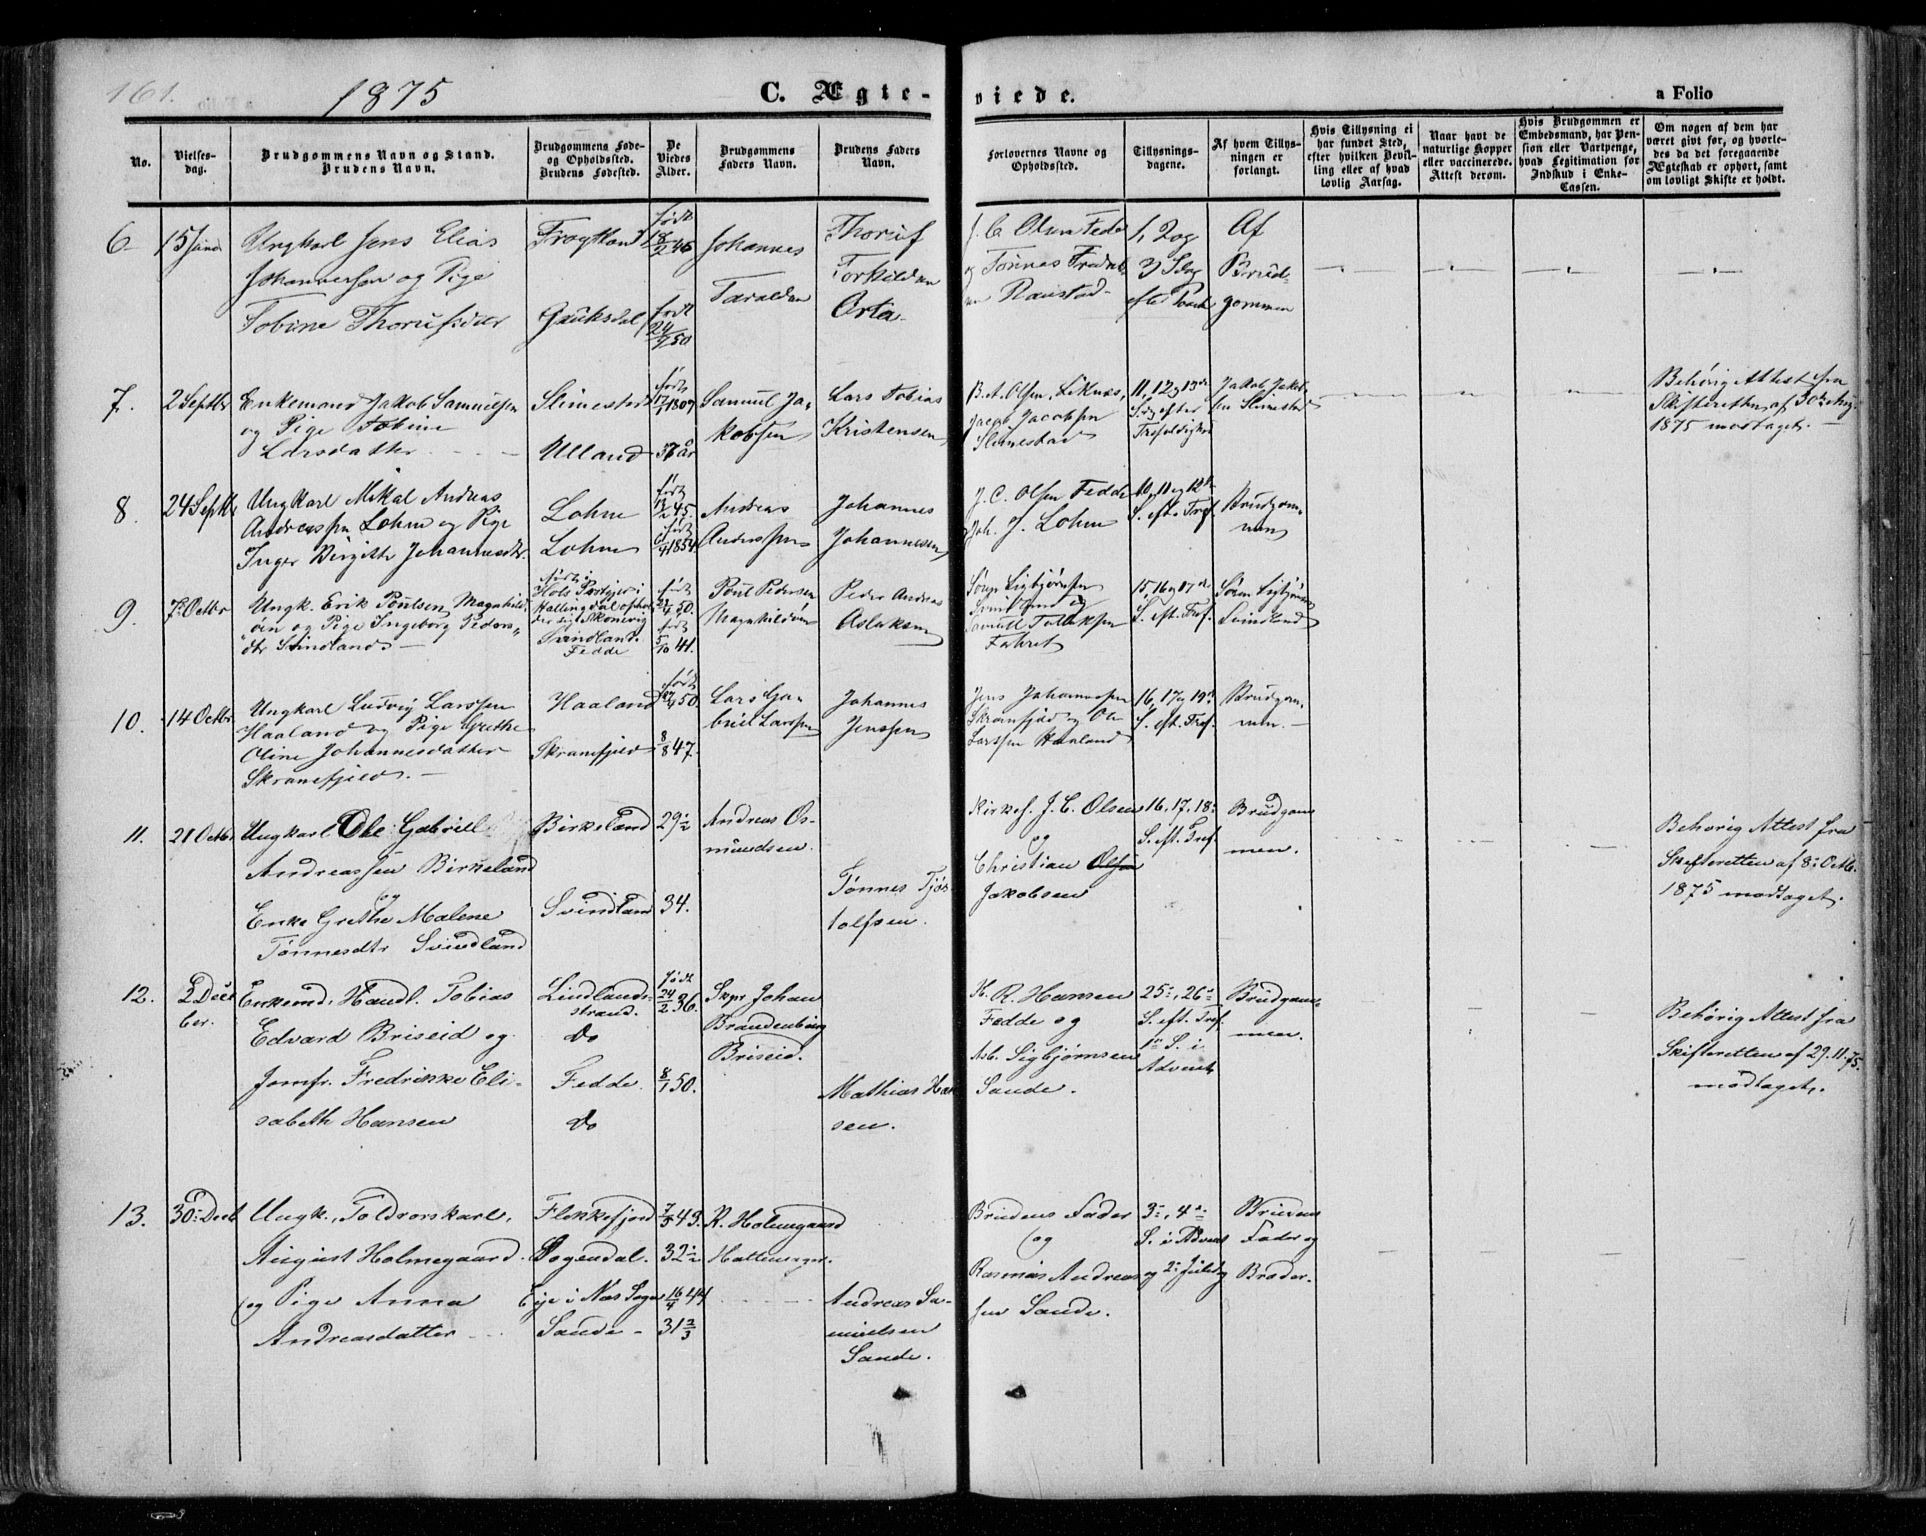 161.
1875
C. Ægte-
viede.
a Folio
No.
Vielses-
dag.
Brudgommens Navn og Stand.
Brudens Navn.
Brudgommens Føde-
og Opholdssted.
Brudens Fødested.
De
Viedes
Alder.
Brudgommens
Faders Navn.
Brudens Faders
Navn.
Forlovernes Navne og
Opholdssted.
Tillysnings-
dagene.
Af hvem Tillys-
ningen er
forlangt.
Hvis Tillysning ei
har fundet Sted,
efter hvilken Bevil-
ling eller af hvad
lovlig Aarsag.
Naar havt de
naturlige Kopper
eller vaccinerede.
Attest derom.
Hvis Brudgommen er
Embedsmand, har Pen-
sion eller Vartpenge,
hvad Legitimation for
Indskud i Enke-
Cassen.
Om nogen af dem har
været gift før, og hvorle-
des da det foregaaende
Ægteskab er ophørt, samt
om lovligt Skifte er holdt.
6
15 Juni
Ungkarl Jens Elias
Johannessen og Pige
Tobine Thorufsdtr
født
18/2 46
født
24/9 50
Johannes
Taraldsen
Thoruf
Torkildsen
J. C. Olsen Fedde
1, 2 og
3 S dag
Af
Brud-
gommen
7.
2 Septbr
Enkemand Jakob Samuelsen
og Pige Tobine
Larsdatter
Slimestad
Ulland
født
1809
Samuel Ja-
kobsen
Lars Tobias
Kristensen
B. A. Olsen, Liknes,
Jacob Jacobsen
Slimestad
11, 12 og 13de
S dg efter
Trefoldighed
Jakob Jakob-
sen Slimestad
Behørig Attest fra
Skifteretten af 30te Aug.
1875 modtaget.
8.
24 Septbr
Ungkarl Mikal Andreas
Andreassen Lohne og Pige
Inger Birgitte Johannesdtr.
Lohne
Lohne
født
45.
født
1854.
Andreas
Anderssen
Johannes
Johannesen
J. C. Olsen Fedde
Joh. J. Lohne
10, 11 og 12te
S. eft. Tref.
Brudgom-
men
9.
7de Octbr
Ungk. Erik Poulsen Magnhild-
øen og Pige Ingeborg Peders-
dtr Svindland
født i
Hols Prstgj. i
Hallingdal
Svindland
Fedde
født
50.
født
5/10 41.
Poul Pedersen
Magnhildøen
Peder Andreas
Aslaksen
Søren Sigbjørnsen
Svindland og
15, 16 og 17de
S. eft. Tref.
Søren Sigbjørnsen
Svindland
10.
14 Octbr
Ungkarl Ludvig Larssen
Haaland og Pige Grethe
Oline Johannesdatter
Skranefjeld.
Haaland
Skranefjeld
født
50
8/8 47.
Lars Ga-
briel Larssen
Johannes
Jenssen
Jens Johannessen
Skranefjeld og Ole
Larssen Haaland
16, 17 og 19de
S. eft. Tref.
Brudgom-
men.
11.
21 Octbr
Ungkarl Ole Gabriell
Andreassen Birkeland
og
Enke Grethe Malene
Tønnesdtr Svindland
Birkeland
Svindland
29½
34.
Andreas Os-
mundsen.
Tønnes Tjøs-
tolfsen.
Kirkes. J. C. Olsen
og
Christian Olsen
Jakobsen
16, 17, 18de
S. eft. Tref.
Brudgom-
men.
Behørig Attest fra
Skifteretten af 8de Octb.
1875 modtaget.
12.
2 Decem-
ber.
Enkemd. Handl. Tobias
Edvard Briseid og
Jomfr. Fredrikke Eli-
sabeth Hansen
Lindlands-
strand.
Do
Fedde.
Do
født
24/2 36.
8/1 50.
Skpr Johan
Brandenburg
Briseid.
Mathias Han-
sen.
H. R. Hansen
Fedde og
Asb. Sigbjørnsen
Sande.
25de, 26de
S. eft. Tref.
1ste S. i
Advent
Brudgom-
men.
Behørig Attest fra
Skifteretten af 29.11.75.
modtaget.
13.
30te Decb
Ungk., Toldrorskarl,
August Holmegaard
og Pige Anna
Andreasdatter
Flekkefjord
Sogendal.
Eje i Næs Sogn
Sande
7/5 43.
32½
16/4 44
31⅔
R. Holmegaard
Hattemager.
Andreas Sa-
muelsen
Sande.
Brudens Fader
og
Rasmus Andreas-
sen Sande.
3de, 4de
S. i Advent
og 2de Juledg
Brudens
Fader og
Broder.